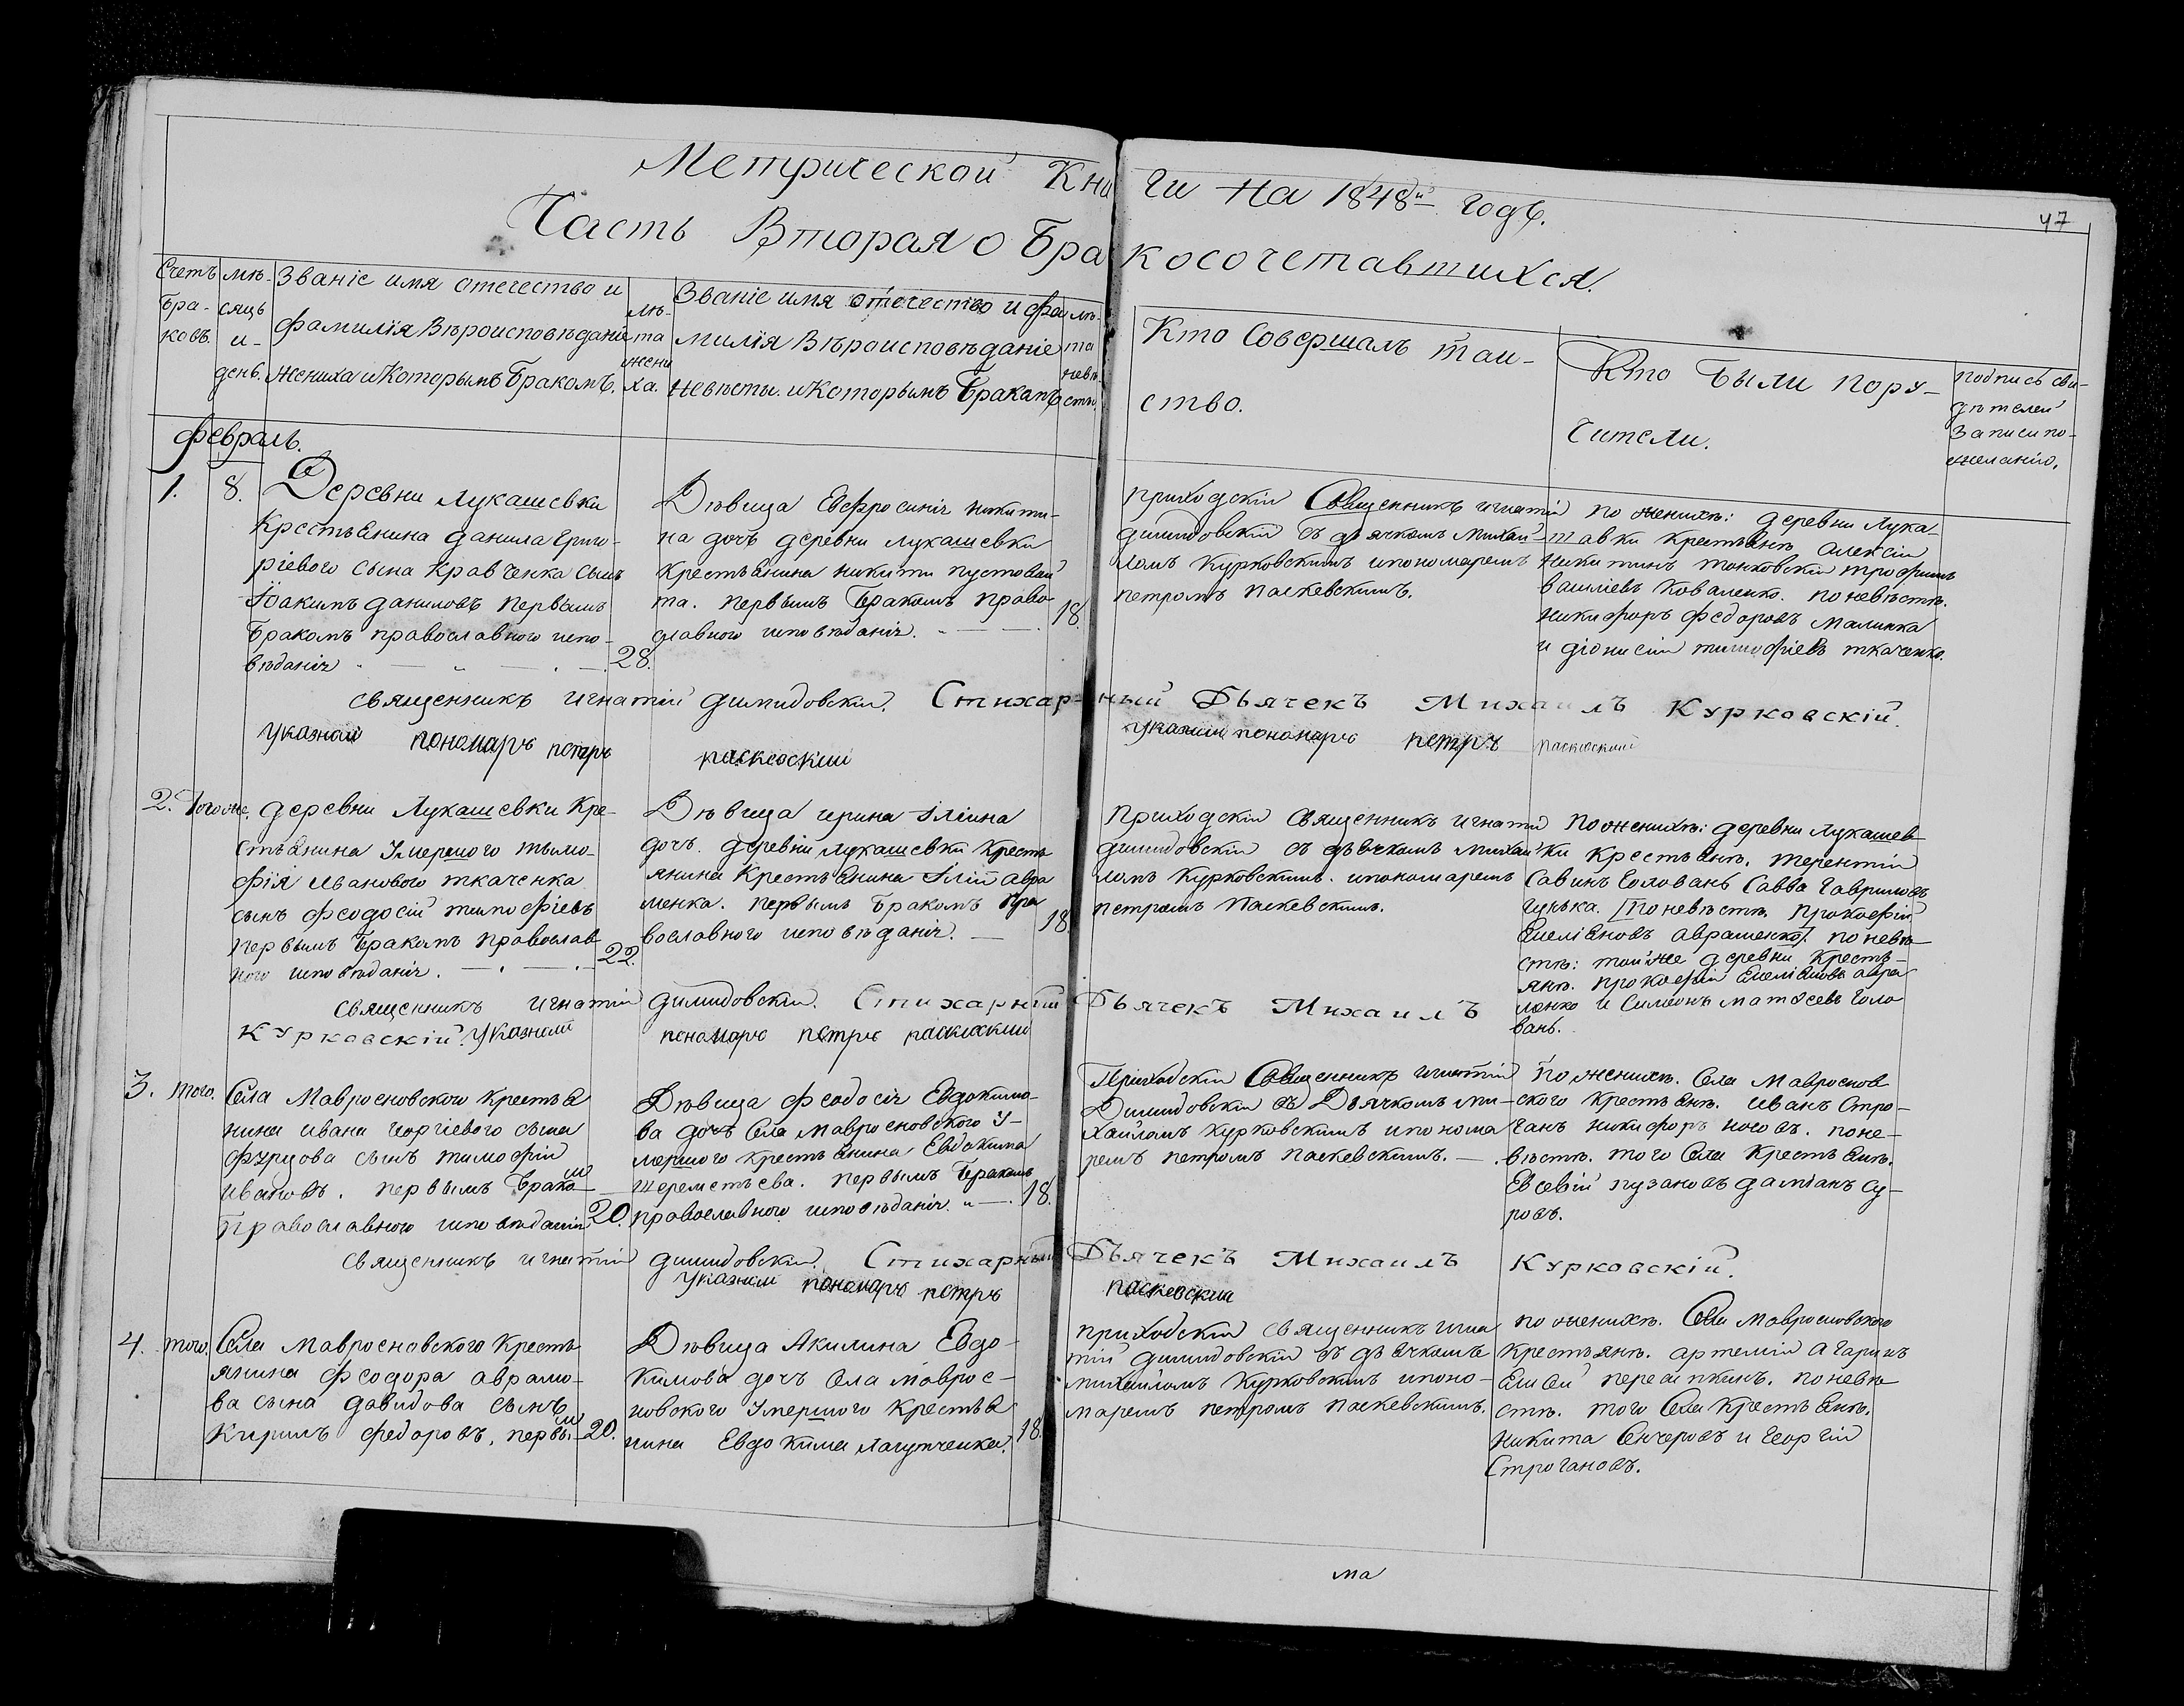 Метрической Книги на 1848й годъ.
47
Часть Вторая о Бракосочетавшихся.
Счетъ Бра-ковъ.
мѣ-сяцъ и-день.
Званіе имя отечество и
фамилія Вѣроисповѣданіе
жениха и Которымъ Бракомъ.
лѣ-та жени ха.
Званіе имя отечество и фа
милія Вѣроисповѣданіе
Невѣсты. и Которымъ Бракомъ
лѣ-та невѣ-сты
Кто Совершалъ таи-
ство.
Кто Были пору-
чители.
подпись сви-
дѣтелей
записи по-
желанію.
февраль.
1. 8.
Деревни Лукашевки
Крестьянина данила Григо-
ріевого сына Кравченка сынъ
Іоакимъ даниловъ первымъ
Бракомъ православного испо-
вѣданія 28.
Дѣвица Евфросинія никити-
на дочъ деревни лукашевки
Крестьянина никити пустовай
та. первымъ Бракомъ право
славного исповѣданія. 18.
приходскій Священникъ игнатій
димидовскій съ дьячкомъ михаи-
ломъ Курковскимъ ипономаремъ
петромъ паскевскимъ.
по женихѣ: деревни Лука-
шавки Крестьянѣ Алексій
Никитинъ тонковскій трофимъ
василіевъ Коваленко. по невѣстѣ.
никифоръ Федоровъ Малинка
и діонисій тимофіевъ ткаченко.
священникъ игнатій димидовскій. Стихарный Дьячекъ Михаилъ Курковскій.
указной пономаръ петръ паскевский указний пономаръ петръ паскевский
2. Тогоже.
деревни Лукашевки Кре-
стьянина Умершого тымо-
фія Иванового ткаченка
сынъ Феодосій тимофіевъ
первымъ Бракомъ православ
ного исповѣданія. 22.
Дѣвица ирина Іліина
дочъ деревни лукашевки Кресть
янина Крестьянина Іліи Авра
менка. первымъ Бракомъ Пра
вославного исповѣданія. 18
Приходскій Священникъ игнатій
димидовскій съ дьячкомъ михаи-
ломъ Курковскимъ. ипономаремъ
петромъ Паскевскимъ.
По женихѣ: деревни лукашев
ки Крестьянѣ. терентій
Савинъ Головань Савва Гавриловъ
гунька. /По невѣстѣ. Прокофій
Емеліяновъ авраменко/. по невѣ
стѣ: той же деревни Кресть-
янѣ. Прокофій Емеліяновъ авра
менко и Симеонъ матѳеевъ Голо
вань.
священникъ игнатій димидовскій. Стихарный Дьячекъ Михаилъ
Курковскій. указной пономаръ петръ паскевский
3. того.
Села Мавросновского Крестья
нина ивана Георгіевого сына
фурцова сынъ тимофій
ивановъ. первымъ Бракомъ
Православного исповѣданія 20.
Дѣвица Феодосія Евдокимо-
ва дочъ Села мавросновского У-
мершого крестьянина Евдокима
шереметьева. первымъ Бракомъ
православного исповѣданія. 18.
Приходскій Священникъ игнатій
Димидовскій съ Дьячкомъ ми-
хаиломъ курковскимъ ипонома
ремъ петромъ паскевскимъ.
По женихѣ. Села Мавроснов
ского крестьянѣ. иванъ Стро-
ганъ никифоръ носовъ. по не-
вѣстѣ. того Села Крестьянѣ.
Евсевій пузановъ даміанъ су-
ровъ.
священникъ игнатій димидовскій. Стихарный Дьячекъ Михаилъ Курковскій.
указний пономаръ петръ паскевский
4. того.
Села мавросновского Кресть
янина Феодора аврамо-
ва сына давидова сынъ
Кирилъ федоровъ. первымъ 20.
Дѣвица Акилина Евдо-
кимова дочъ Села Маврос-
новского Умершого Крестья
нина Евдокима лагутченка. 18.
приходскій священникъ игна
тій димидовскій съ дьячкомъ
михаиломъ Курковскимъ ипоно-
маремъ петромъ паскевскимъ.
по женихѣ. Села Мавросновского
крестьянѣ. артемій агаринъ
Елисѣй . по невѣ
стѣ. того Села Крестьянѣ.
Никита и Георгій
Строгановъ.
ма